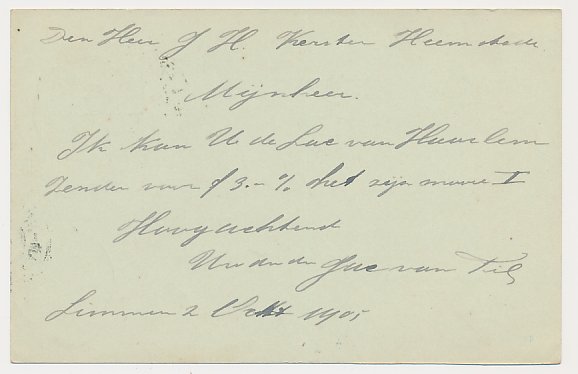 Den Heer J H. Kerster Heemstede
Mijnheer.
Ik kan U de Luc van Haarlem
zenden voor f 3.- % het zijn mooie I
Hoogachtend
Uw dw dr Jac van Til
Limmen 2 Okt 1905